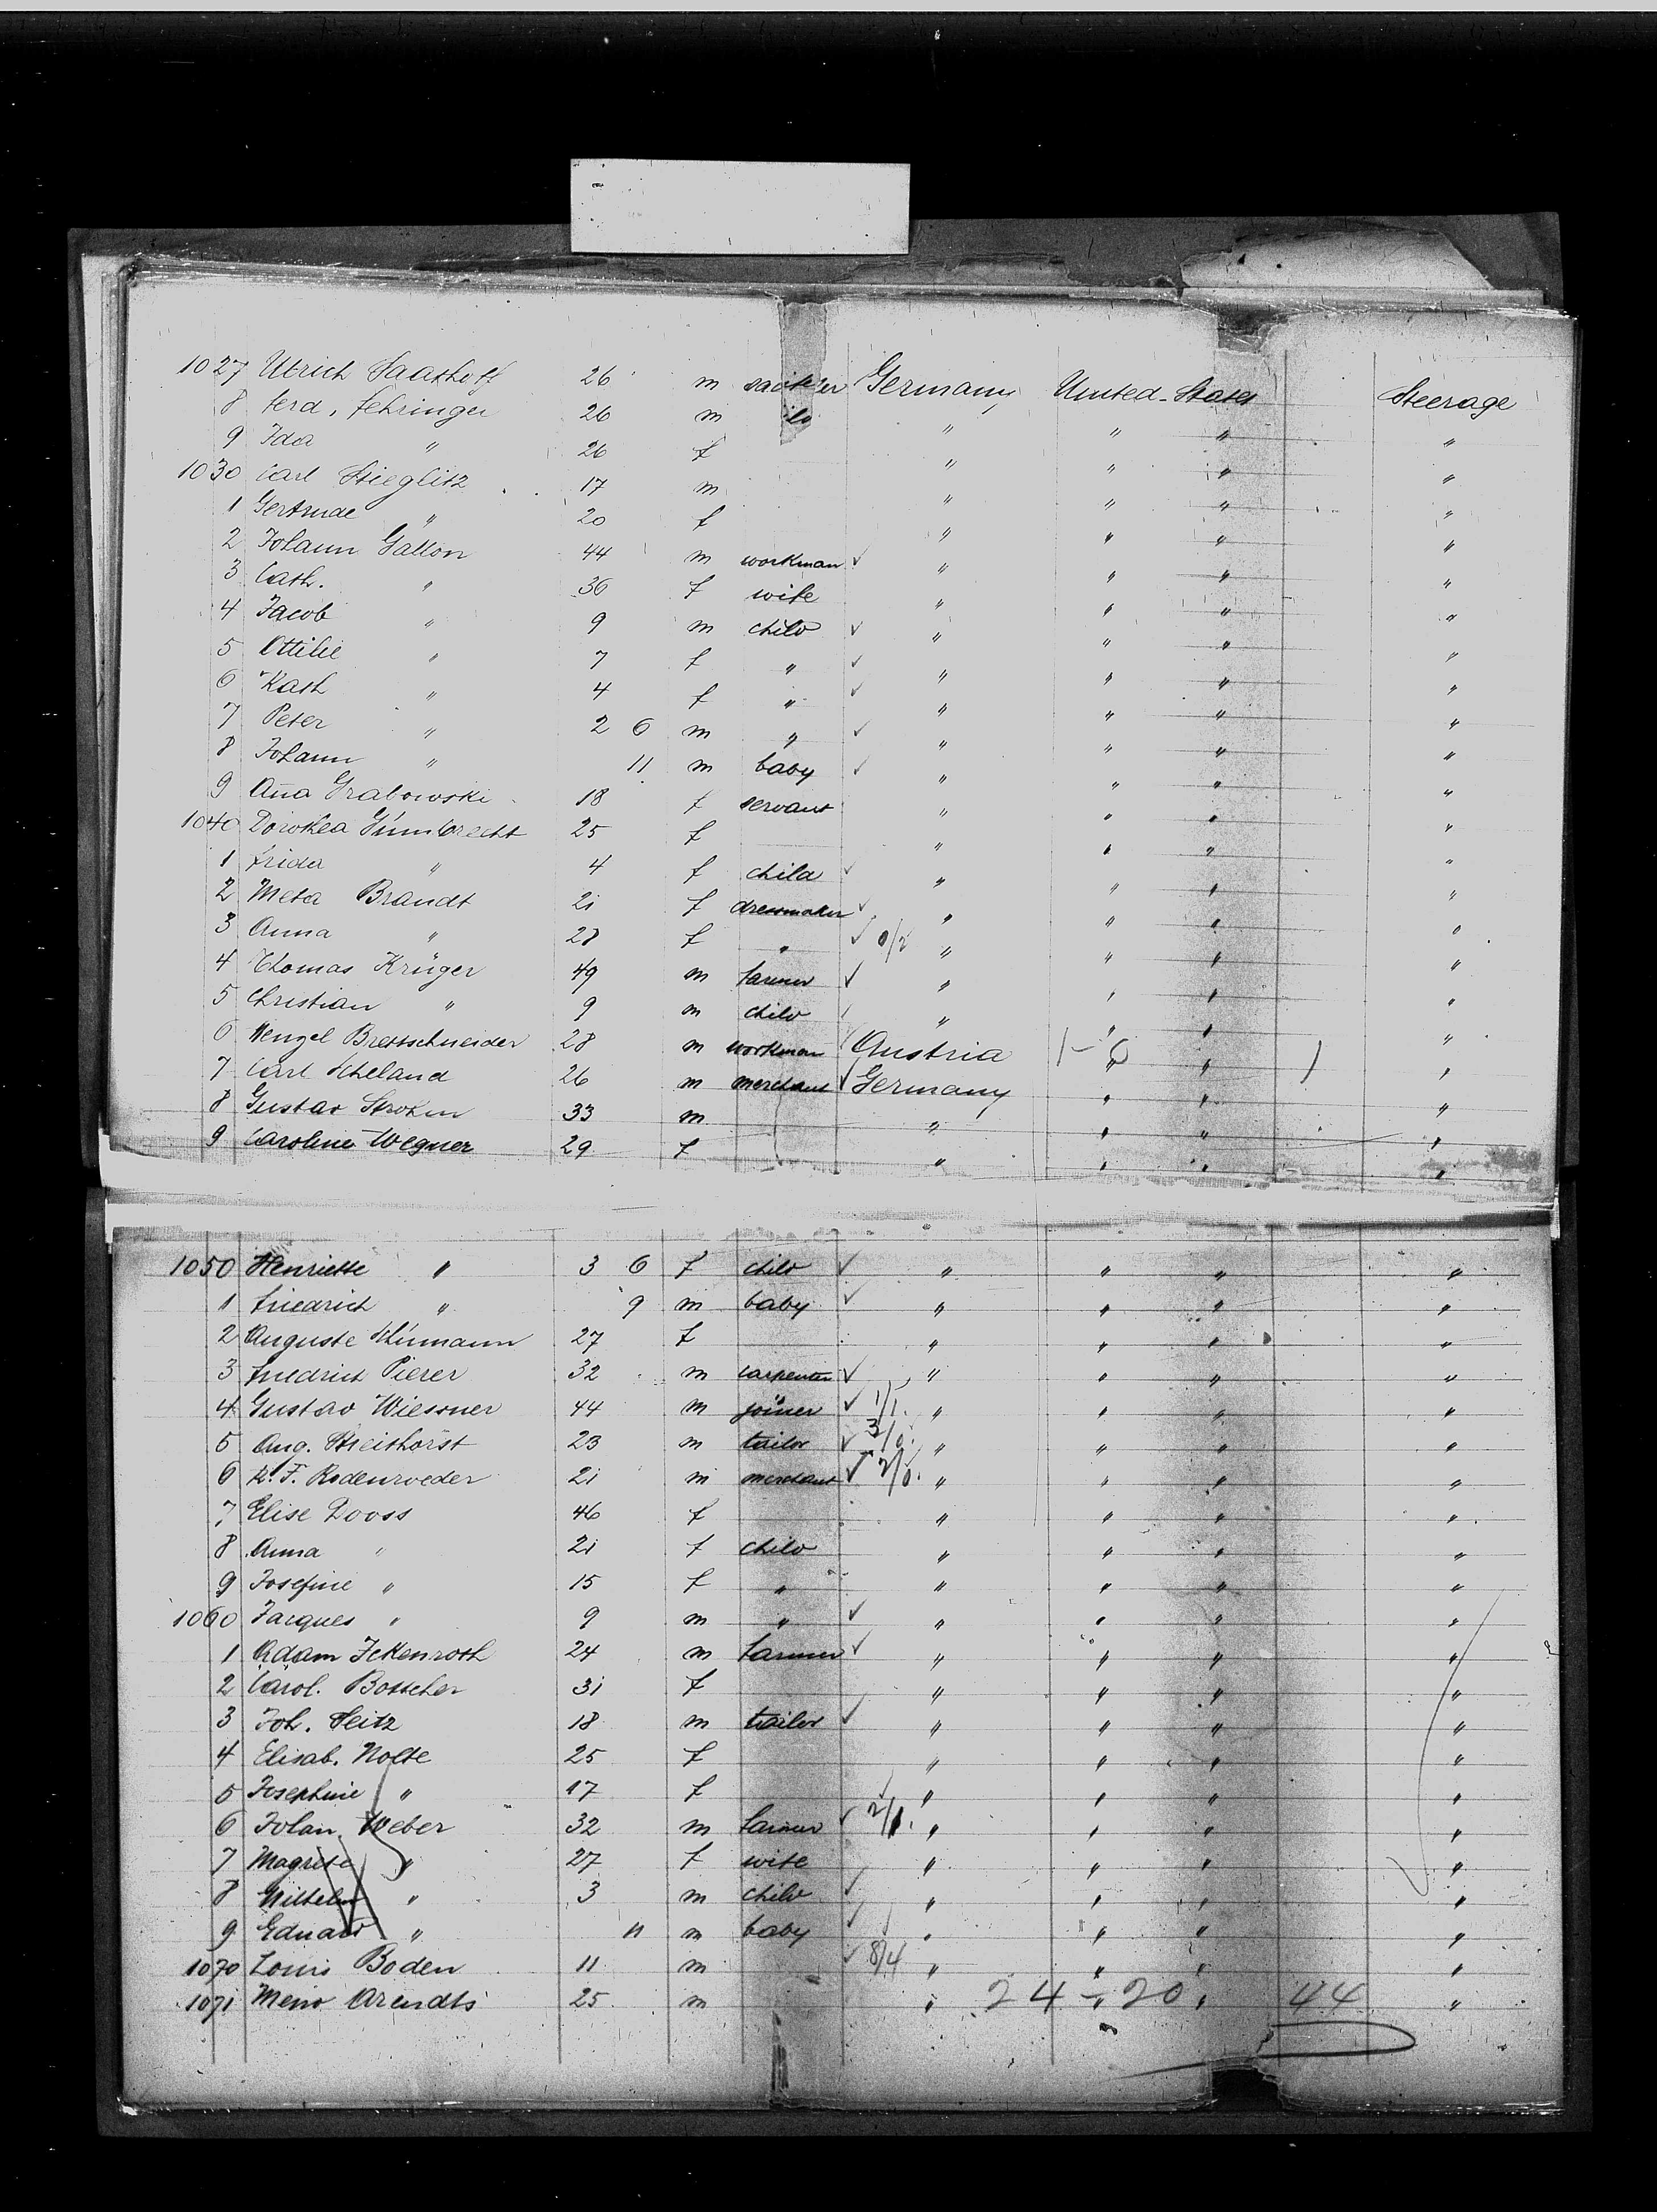 1027 Ulrich Saathoff 26 m Germany United-States Steerage
8 Ferd. Fehringer 26 m do " " " "
9 Ida " 26 f " " " "
1030 Carl Stieglitz 17 m " " " "
1 Gertrude " 20 f " " " "
2 Johann Gallon 44 m workman ✓ " " " "
3 Cath. " 36 f wife " " " "
4 Jacob " 9 m child ✓ " " " "
5 Ottilie " 7 f " ✓ " " " "
6 Kath " 4 f " ✓ " " " "
7 Peter " 2 6 m " ✓ " " " "
8 Johann " 11 m baby ✓ " " " "
9 Anna Grabowski 18 f servant " " " "
1040 Dorothea Gumbrecht 25 f " " " "
1 Frida " 4 f child ✓ " " " "
2 Meta Brandt 21 f dressmaker ✓ " " " "
3 Anna " 28 f " ✓ 0/2 " " " "
4 Thomas Krüger 49 m farmer ✓ " " " "
5 Christian " 9 m child ✓ " " " "
6 Wenzel Brettschneider 28 m workman Austria 1-0 " " 1 "
7 Carl Scheland 26 m merchant ✓ Germany " " "
8 Gustav 33 m " " " "
9 Caroline Wegner 29 f " " " "
1050 Henriette " 3 6 f child ✓ " " " "
1 Friedrich " 9 m baby ✓ " " " "
2 Auguste Schümann 27 f " " " "
3 Friedrich Pierer 32 m carpenter ✓ " " " "
4 Gustav Wiessner 44 m joiner ✓ 1/1. " " " "
5 Aug. Streithorst 23 m tailor ✓ 3/0. " " " "
6 F. Rodenroeder 21 m merchant ✓ 2/0. " " " "
7 Elise Dooss 46 f " " " "
8 Anna " 21 f child " " " "
9 Josefine " 15 f " " " " "
1060 Jacques " 9 m " ✓ " " " "
1 Adam Ickenroth 24 m farmer ✓ " " " "
2 Carol. Bottcher 31 f " " " "
3 Joh. Seitz 18 m tailor ✓ " " " "
4 Elisab. Nolte 25 f " " " "
5 Josephine " 17 f ✓ " " " "
6 Johan Weber 32 m farmer ✓ 2/1. " " " "
7 Magrete " 27 f wife " " " "
8 Wilhelm " 3 m child ✓ " " " "
9 Eduard " 11 m baby ✓ " " " "
1070 Louis Boden 11 m ✓ 8/4 " " " "
1071 Meno Arendts 25 m " 24 - 20 " 44 "